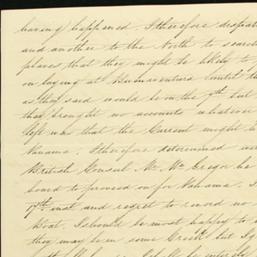 having happened. I therefore despat
and another to the North to search
places that they might be likely to
on laying at Buenaventura until the
as they said would be on the 9th but
they brought no accounts whatever
left us that the Current might
Panama. I therefore determined
British Consul Mr. McGregor
board to proceed on for Panama. I
17th inst and regret to record no
Boat. I should be most happy to
they may been some Creek but I